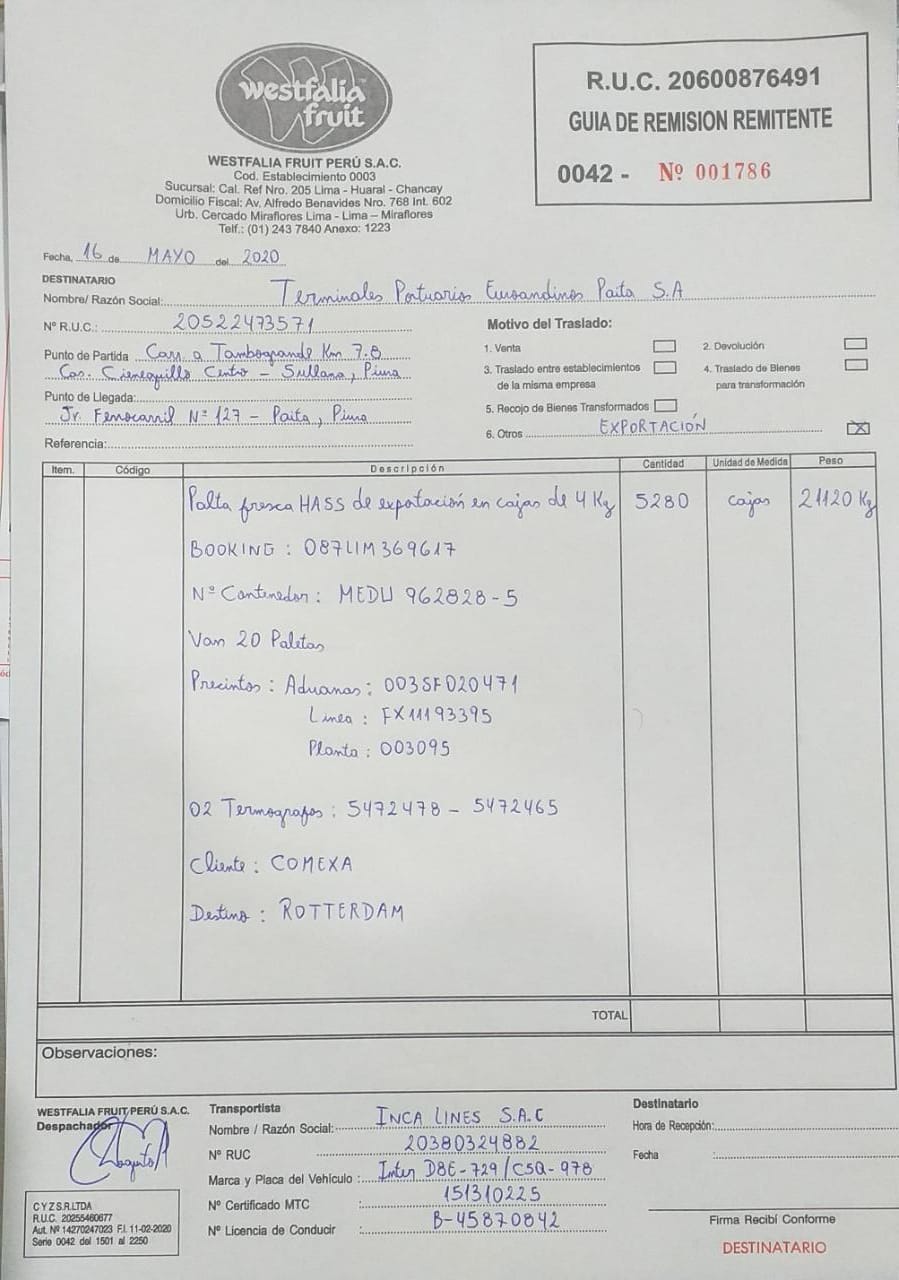 westfalia
fruit
WESTFALIA FRUIT PERÚ S.A.C.
Cod. Establecimiento 0003
Sucursal: Cal. Ref Nro. 205 Lima - Huaral - Chancay
Domicilio Fiscal: Av. Alfredo Benavides Nro. 768 Int. 602
Urb. Cercado Miraflores Lima - Lima – Miraflores
Telf.: (01) 243 7840 Anexo: 1223
R.U.C. 20600876491
GUIA DE REMISION REMITENTE
0042 - Nº 001786
Fecha, 16 de MAYO del 2020
DESTINATARIO
Nombre/ Razón Social: Terminales Portuarios Euroandinos Paita S.A
Nº R.U.C.: 20522473571
Punto de Partida Carr. a Tambogrande Km 7.8
Cas. Cieneguillo Centro - Sullana, Piura
Punto de Llegada:
Jr. Ferrocarril Nº 127 - Paita, Piura
Referencia:
Motivo del Traslado:
1. Venta
2. Devolución
3. Traslado entre establecimientos
de la misma empresa
4. Traslado de Bienes
para transformación
5. Recojo de Bienes Transformados
6. Otros EXPORTACIÓN X
Item. Código Descripción Cantidad Unidad de Medida Peso
Palta fresca HASS de exportación en cajas de 4 Kg 5280 cajas 21120 Kg
BOOKING : 087LIM369617
Nº Contenedor : MEDU 962828-5
Van 20 Paletas
Precintos : Aduanas : 003SF020471
Linea : FX11193395
Planta : 003095
02 Termografos : 5472478 - 5472465
Cliente : COMEXA
Destino : ROTTERDAM
TOTAL
Observaciones:
WESTFALIA FRUIT PERÚ S.A.C.
Despachador
C Y Z S.R.LTDA
R.U.C. 20255460677
Aut. Nº 14270247023 F.I. 11-02-2020
Serie 0042 del 1501 al 2250
Transportista
Nombre / Razón Social: INCA LINES S.A.C
Nº RUC 20380324882
Marca y Placa del Vehículo : Inter D8E-729/C5Q-978
Nº Certificado MTC : 151310225
Nº Licencia de Conducir : B-45870842
Destinatario
Hora de Recepción:
Fecha :
Firma Recibí Conforme
DESTINATARIO